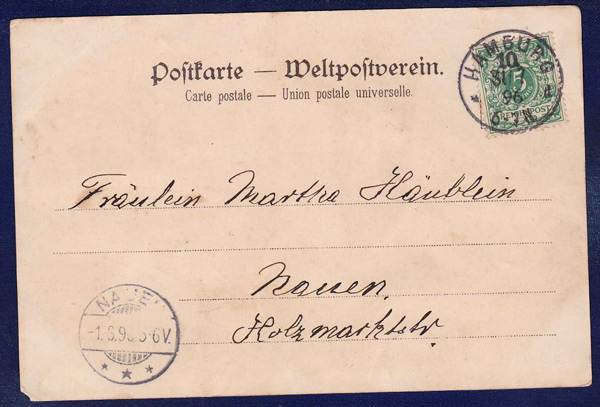 Postkarte — Weltpostverein.
Carte postale — Union postale universelle.
HAMBURG
10
31 7
96
6-7N. d
5
REICHSPOST
Fräulein Martha Häublein
Nauen,
Holzmarktstr
NAUEN